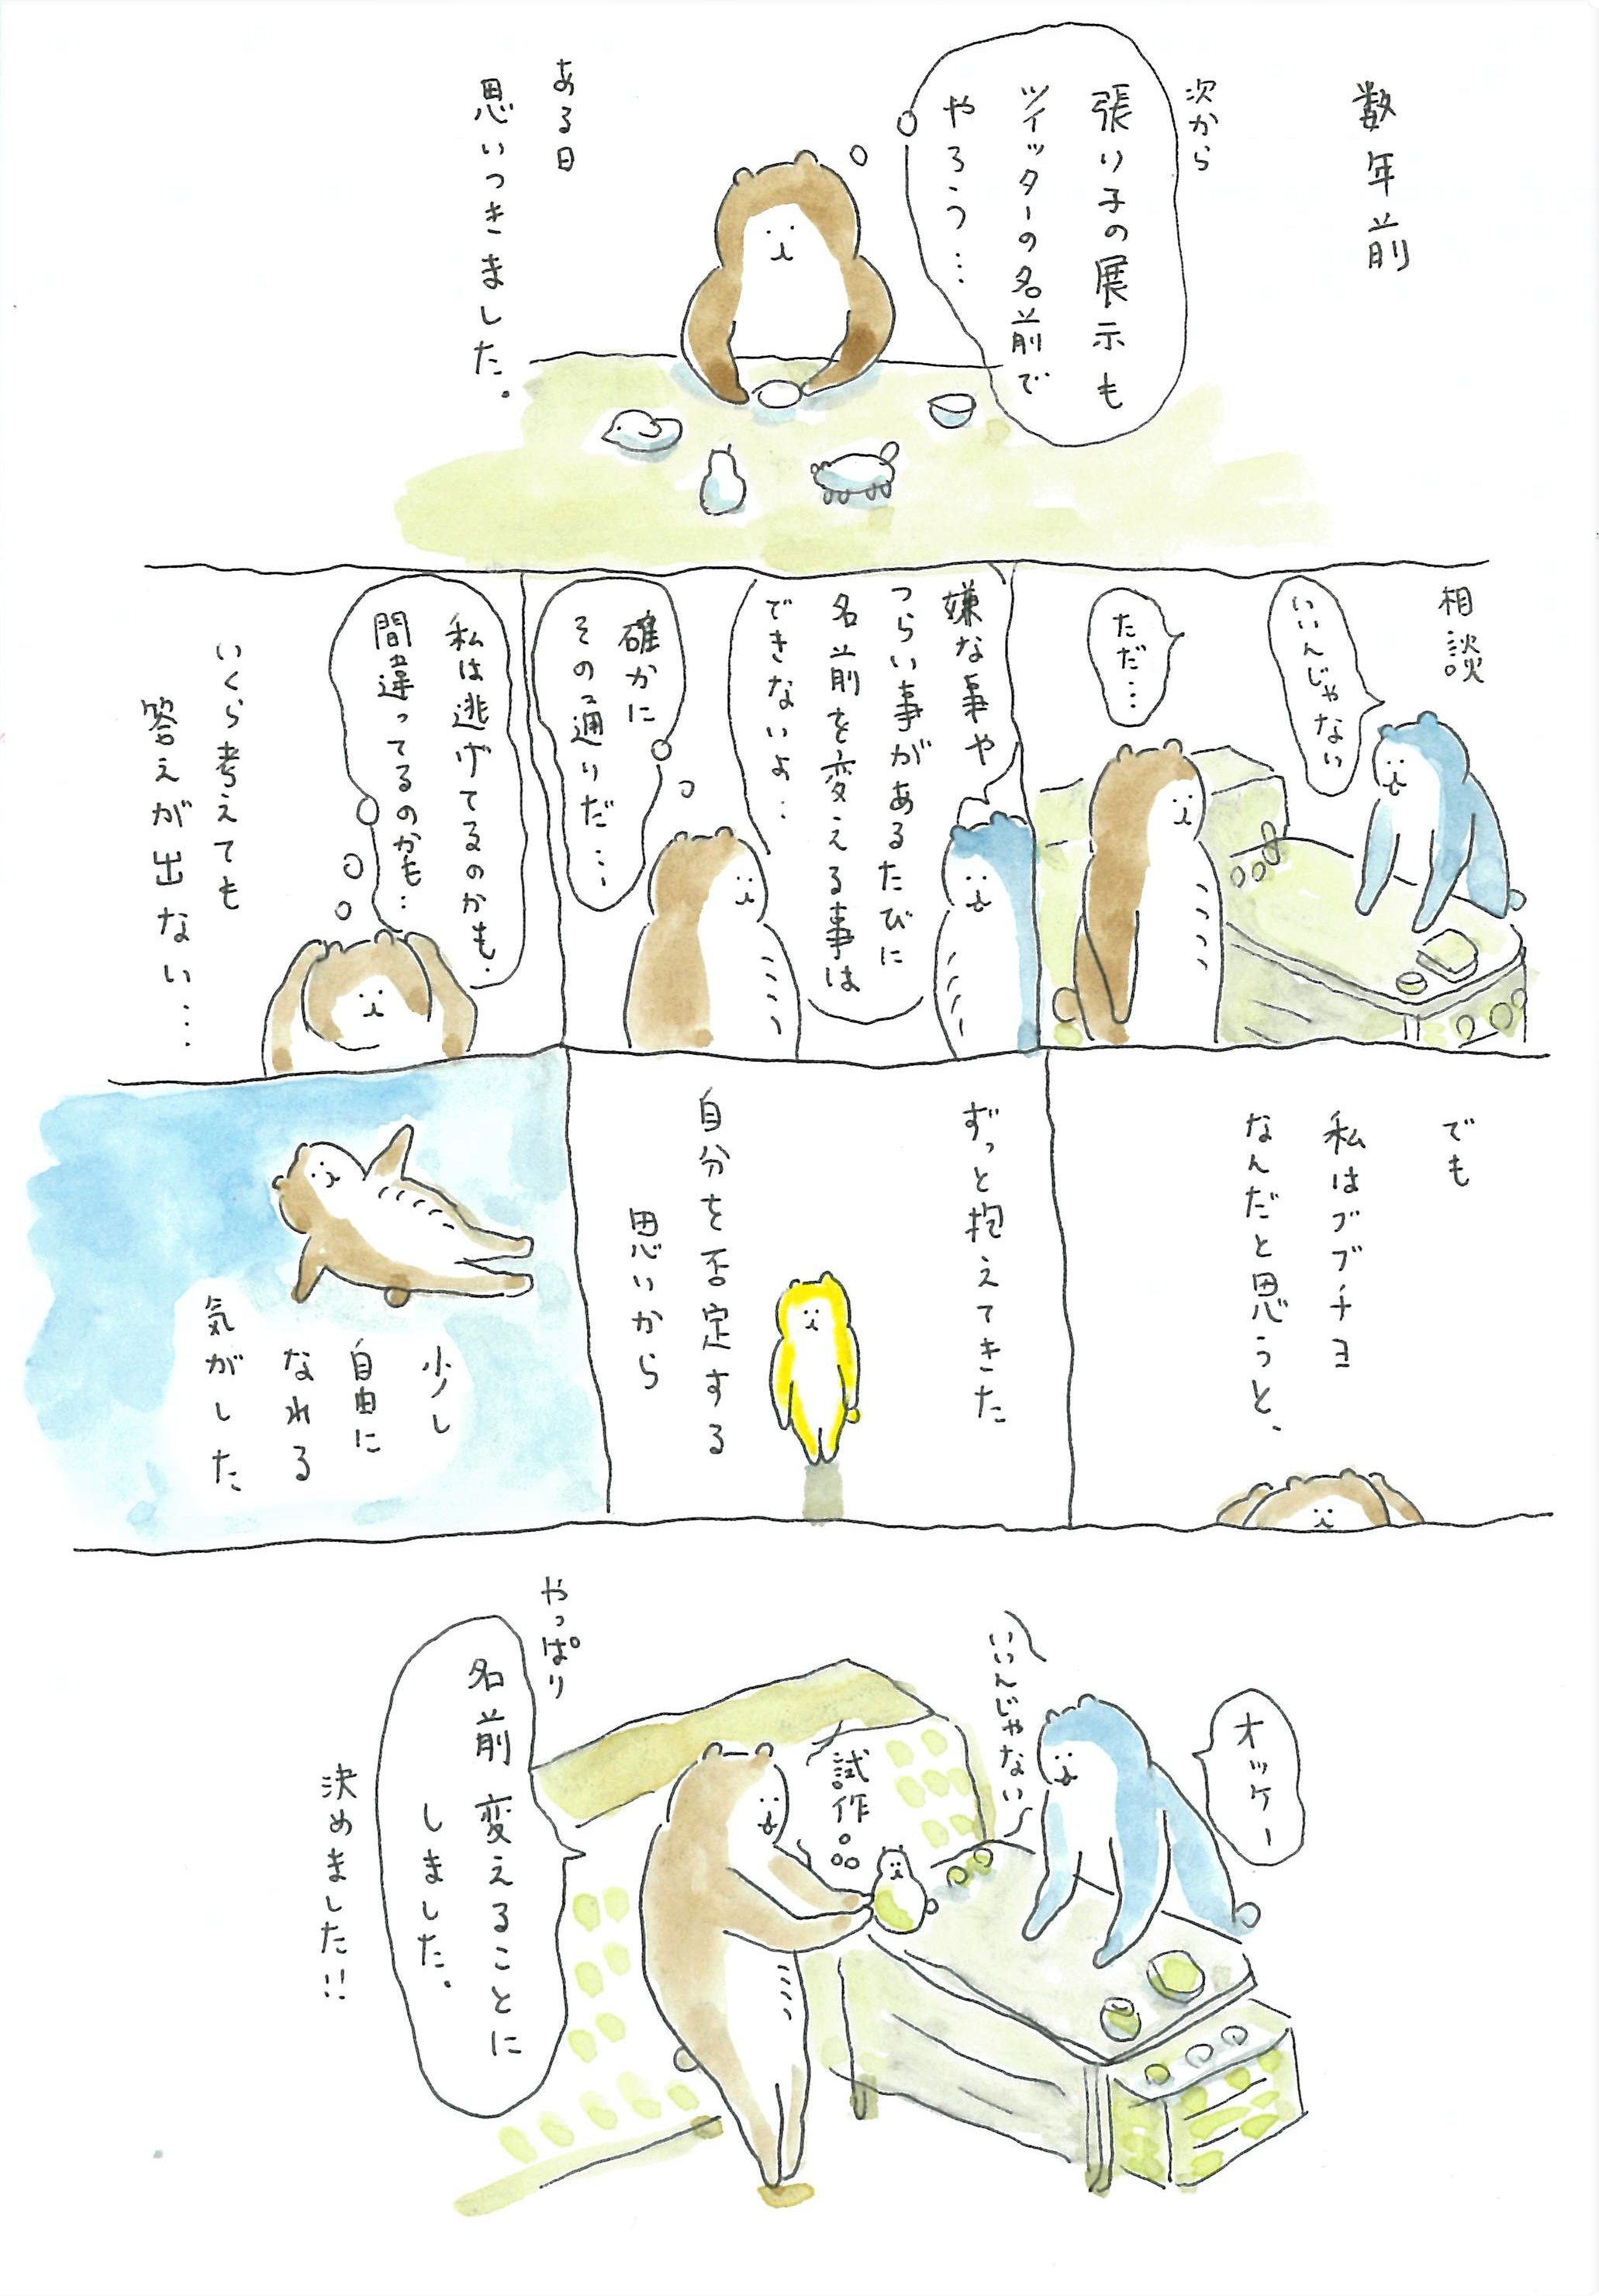 数年前
次から
張り子の展示も
ツイッターの名前で
やろう…
ある日
思いつきました。
相談
いいんじゃない
ただ…
嫌な事や
つらい事があるたびに
名前を変える事は
できないよ…
確かに
その通りだ…
私は逃げてるのかも．
間違ってるのかも…
いくら考えても
答えが出ない…
でも
私はブブチヨ
なんだと思うと、
ずっと抱えてきた
自分を否定する
思いから
少し
自由に
なれる
気がした、
オッケー
いいんじゃない
試作。
やっぱり
名前変えることに
しました。
決めました!!